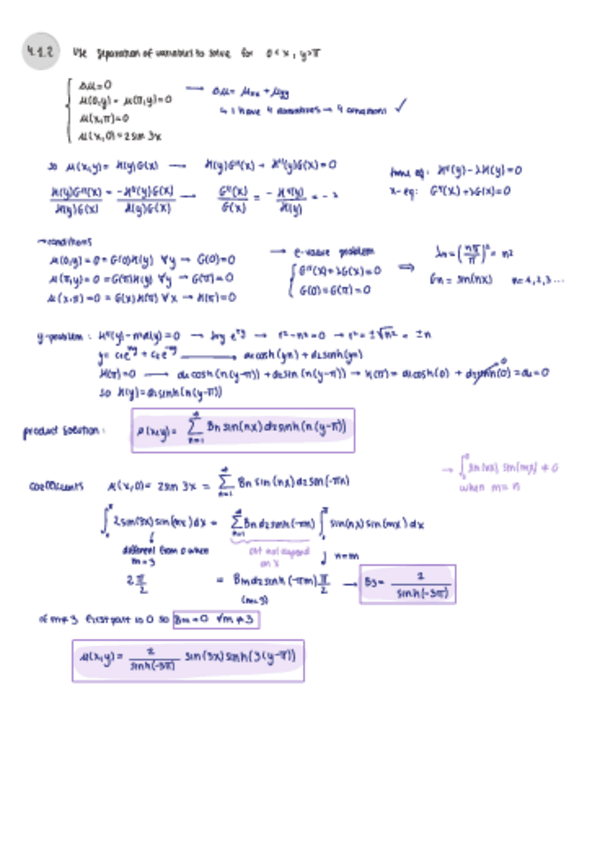 4.1.2 Use separation of variables to solve for 0 < x, y > π
Δu = 0 → Δu = uxx + uyy
u(0,y) = u(π,y) = 0
↳ I have 4 derivatives → 4 conditions ✓
u(x,π) = 0
u(x,0) = 2 sin 3x
so u(x,y) = H(y)G(x) → H(y)G''(x) + H''(y)G(x) = 0
time eq: H''(y) - λH(y) = 0
H(y)G''(x) / H(y)G(x) = -H''(y)G(x) / H(y)G(x) → G''(x) / G(x) = - H''(y) / H(y) = - λ
x-eq: G''(x) + λG(x) = 0
→ conditions
u(0,y) = 0 = G(0)H(y) ∀y → G(0) = 0
u(π,y) = 0 = G(π)H(y) ∀y → G(π) = 0
u(x,π) = 0 = G(x)H(π) ∀x → H(π) = 0
→ e-value problem
G''(x) + λG(x) = 0
G(0) = G(π) = 0
⇒ λn = (nπ/π)² = n²
Gn = sin(nx) n = 1, 2, 3 ...
y-problem: H''(y) - n²H(y) = 0 → try e^ry → r² - n² = 0 → r = ±√n² = ±n
→ d1 cosh(yn) + d2 sinh(yn)
H(π) = 0 → d1 cosh(n(y-π)) + d2 sinh(n(y-π)) → H(π) = d1 cosh(0) + d2 sinh(0) = d1 = 0
so H(y) = d2 sinh(n(y-π))
product solution: u(x,y) = ∑ n=1 ∞ Bn sin(nx) d2 sinh(n(y-π))
coefficients u(x,0) = 2 sin 3x = ∑ n=1 ∞ Bn sin(nx) d2 sinh(-πn)
→ ∫ sin(nx), sin(mx) ≠ 0
when m = n
∫ 2 sin(3x) sin(mx) dx = ∑ n=1 ∞ Bn d2 sinh(-πn) ∫ sin(nx) sin(mx) dx
different from 0 when
m = 3
not depend
on x
n = m
2 π/2 = Bm d2 sinh(-πm) π/2 → B3 = 2 / sinh(-3π)
(m=3)
if m ≠ 3 first part is 0 so Bm = 0 ∀m ≠ 3
u(x,y) = 2 / sinh(-3π) sin(3x) sinh(3(y-π))